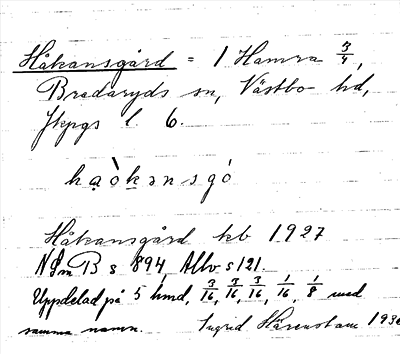 Håkansgård = 1 Hamra 3/4,
Bredaryds sn, Västbo hd,
Jkpgs l. 6.
ha̱ò̱ḵənsgó
Håkansgård kb 1927
NSmB s 894, Allv s 121.
Uppdelad på 5 hmd, 3/16, 3/16, 3/16, 1/16, 1/8 med
samma namn. Ingrid Hårenstam